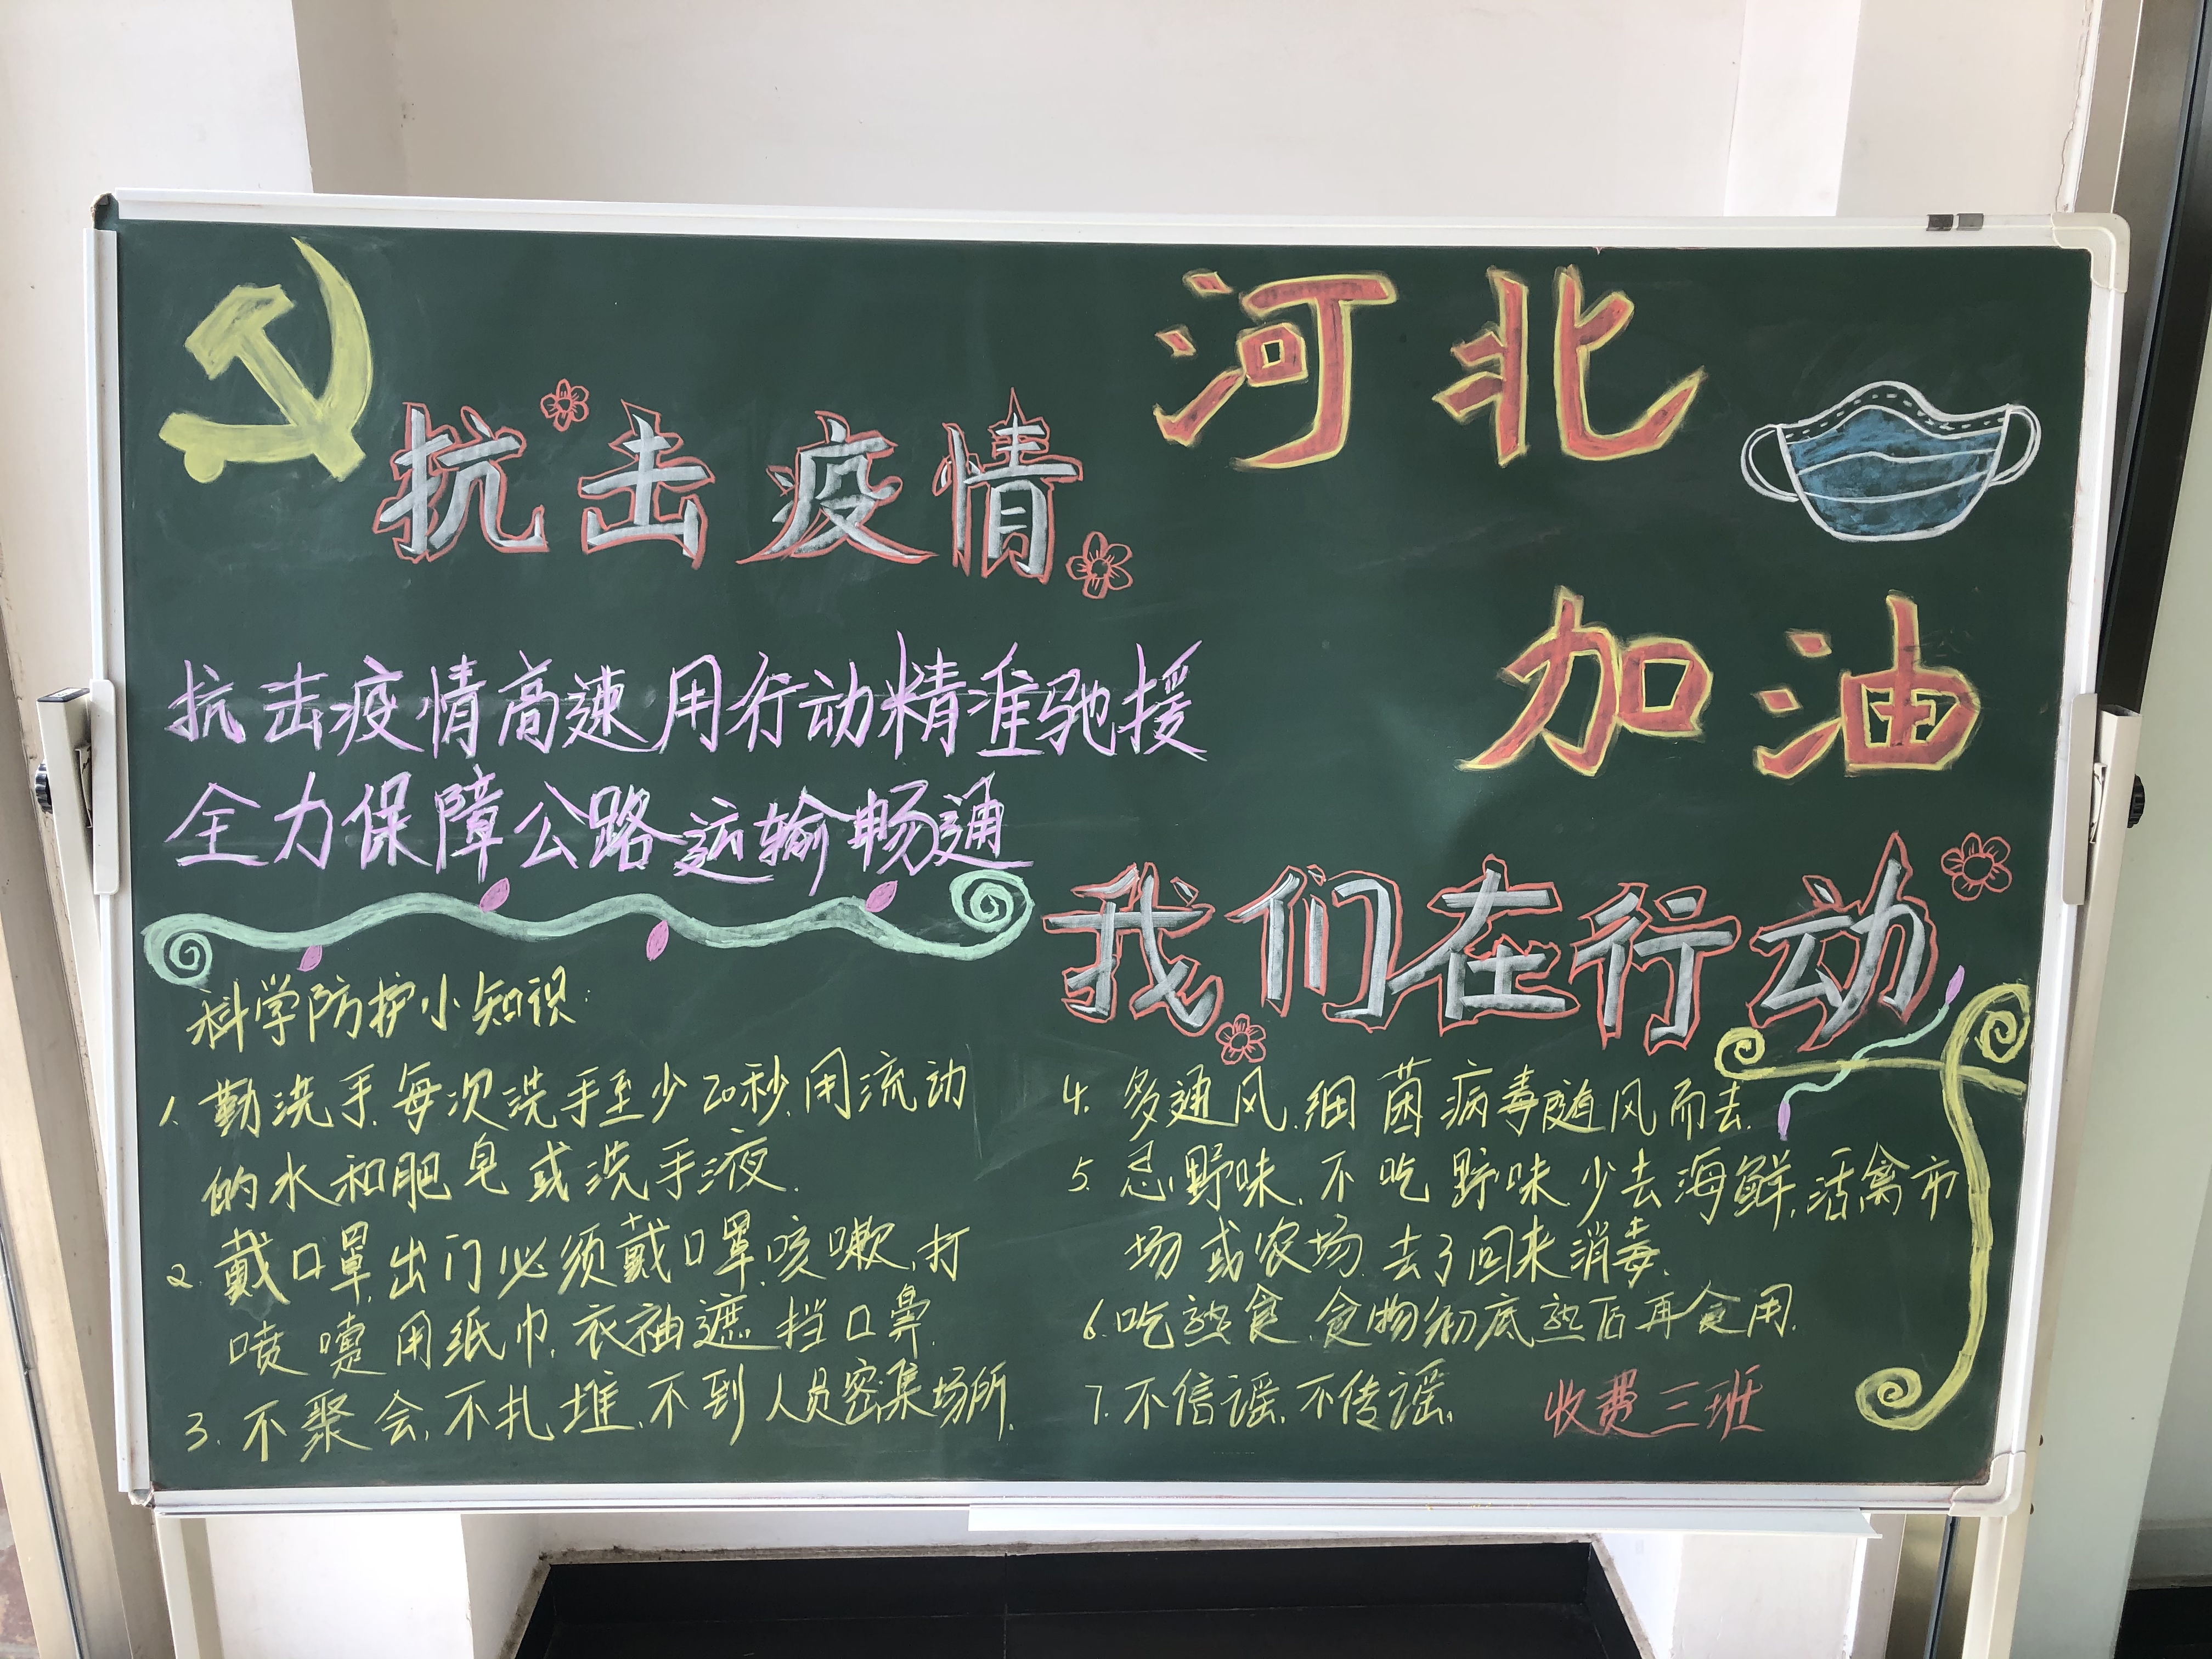 抗击疫情
河北
加油
抗击疫情高速用行动精准驰援
全力保障公路运输畅通
我们在行动
科学防护小知识:
1. 勤洗手,每次洗手至少20秒,用流动
的水和肥皂或洗手液.
2. 戴口罩,出门必须戴口罩,咳嗽,打
喷嚏用纸巾,衣袖遮挡口鼻.
3. 不聚会,不扎堆,不到人员密集场所.
4. 多通风,细菌病毒随风而去.
5. 忌野味,不吃野味少去海鲜,活禽市
场或农场,去了回来消毒.
6. 吃熟食,食物彻底熟后再食用.
7. 不信谣,不传谣.
收费三班